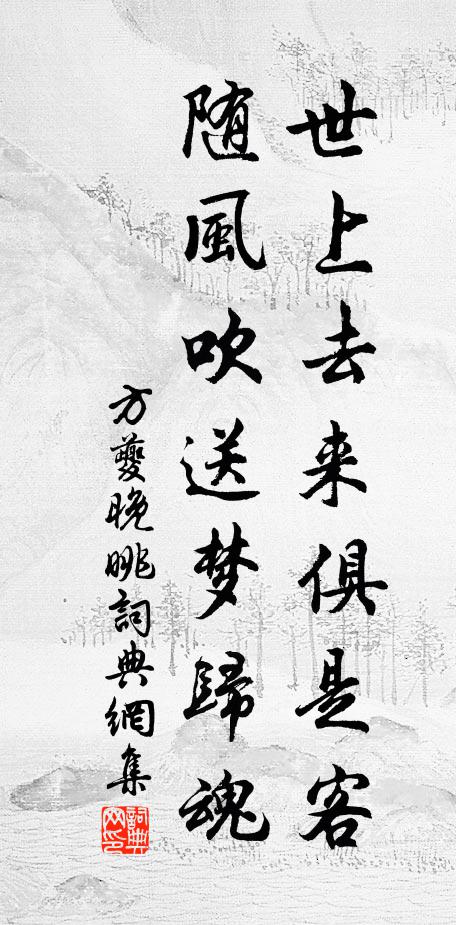 世上去来俱是客
随風吹送梦歸魂
方夔晚眺詞典網集
詞典
网印